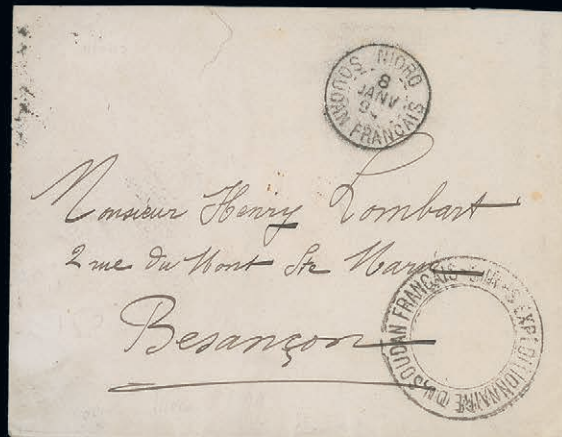 NIORO
8
JANV
9
SOUDAN FRANCAIS
Monsieur Henry Lombart
2 rue du Mont Ste Marie
Besançon
CORPS EXPEDITIONNAIRE DU SOUDAN FRANCAIS